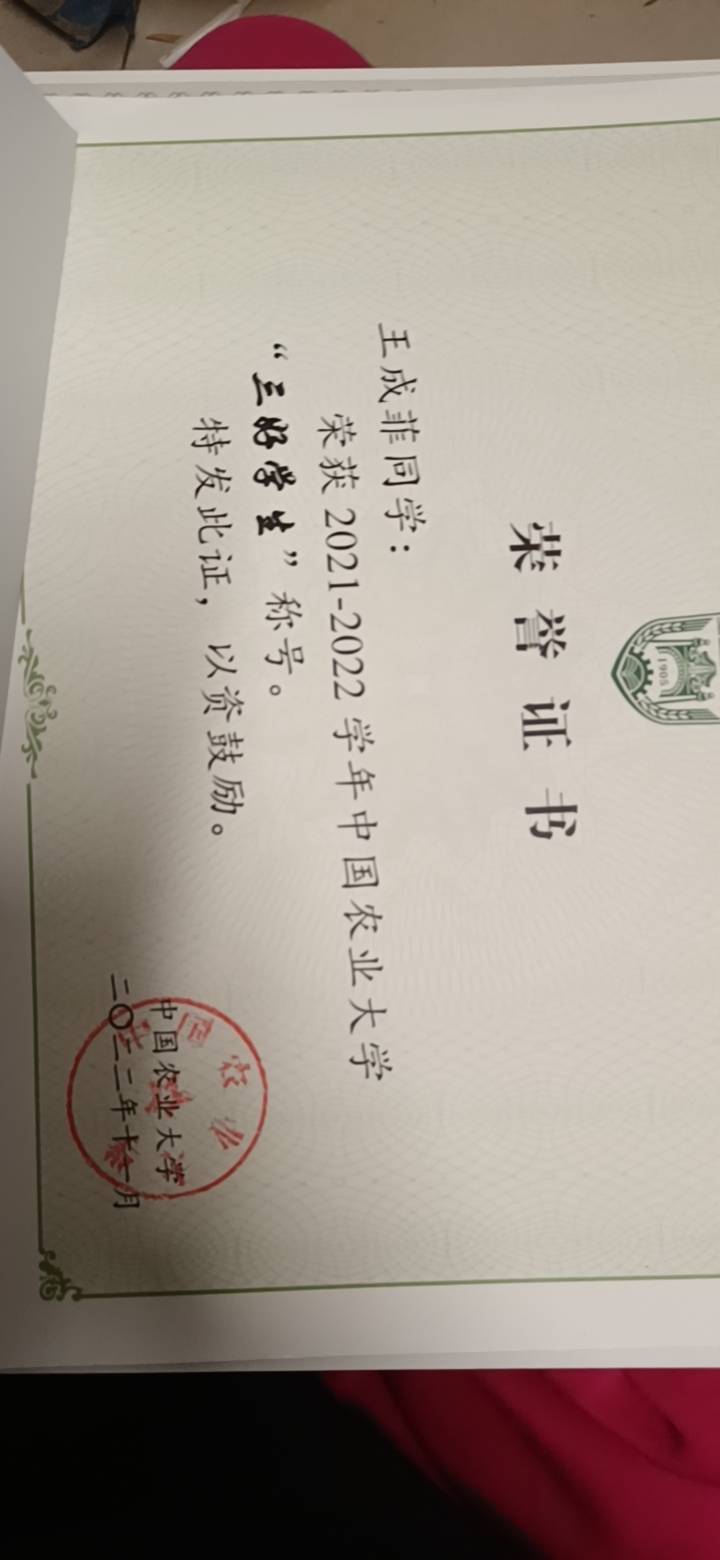 1905
荣誉证书
王成菲同学：
荣获2021-2022学年中国农业大学
“三好学生”称号。
特发此证，以资鼓励。
中国农业大学
二〇二二年十一月